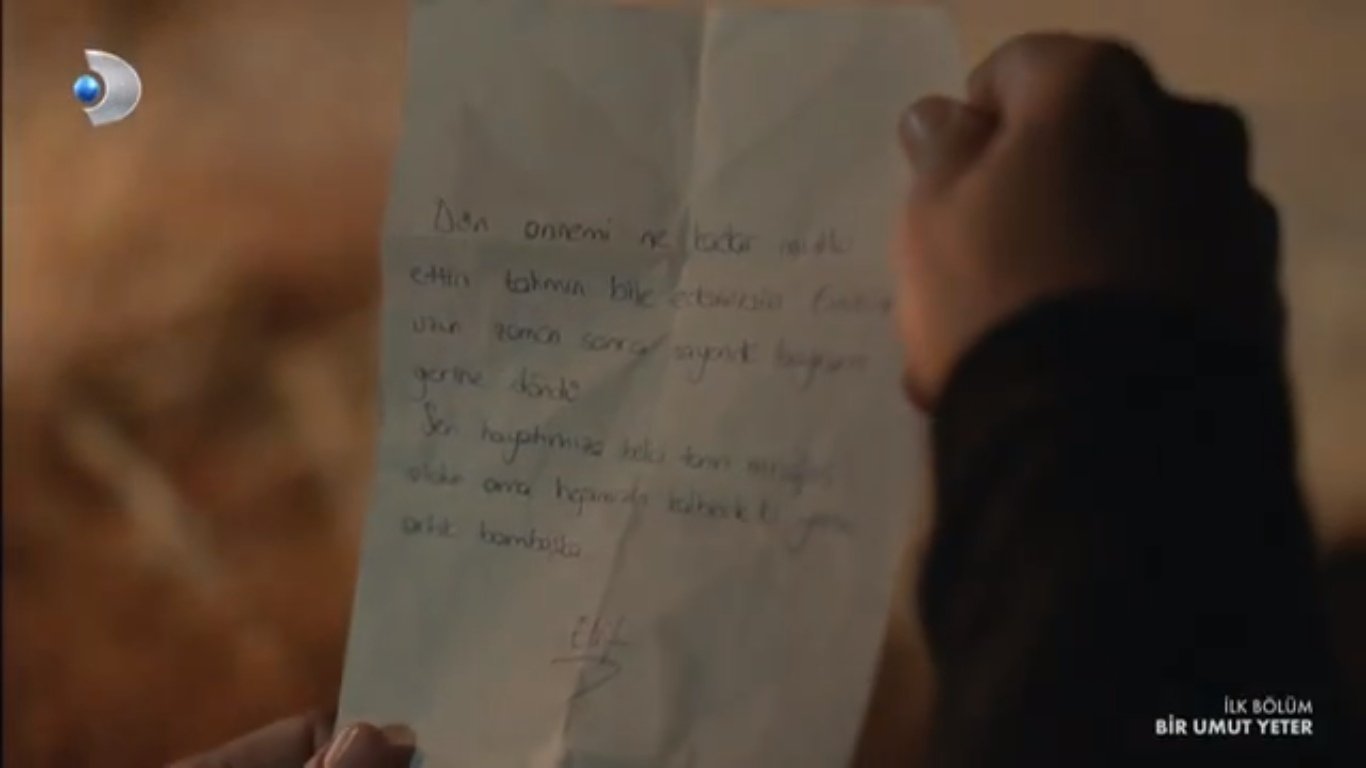 Dün annemi ne kadar mutlu
ettin tahmin bile edemezsin
uzun zaman sonra sayende
yerine döndü
Sen hayatımıza belki
oldun ama hepimizin kalbindeki yerin
artık bambaşka
Elif
İLK BÖLÜM
BİR UMUT YETER